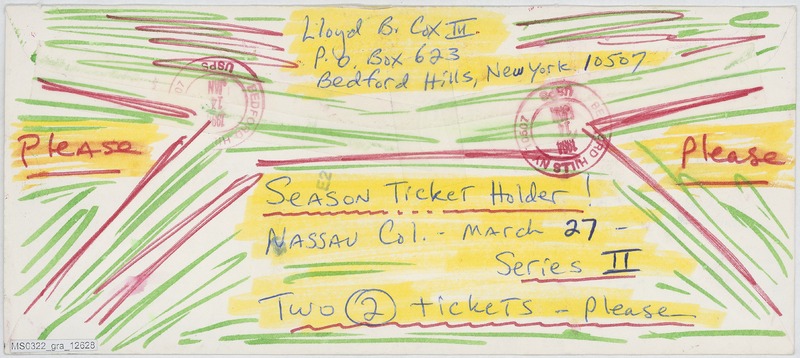 Lloyd B. Cox III.
P.O. Box 623
Bedford Hills, New York 10507
USPS
BEDFORD H
07
JAN
USPS
BEDFORD HILLS NY 10507
JAN
Please
Please
E2
SEASON TICKET HOLDER!
NASSAU Col. - MARCH 27 -
Series II
TWO 2 tickets - please
MS0322_gra_12628